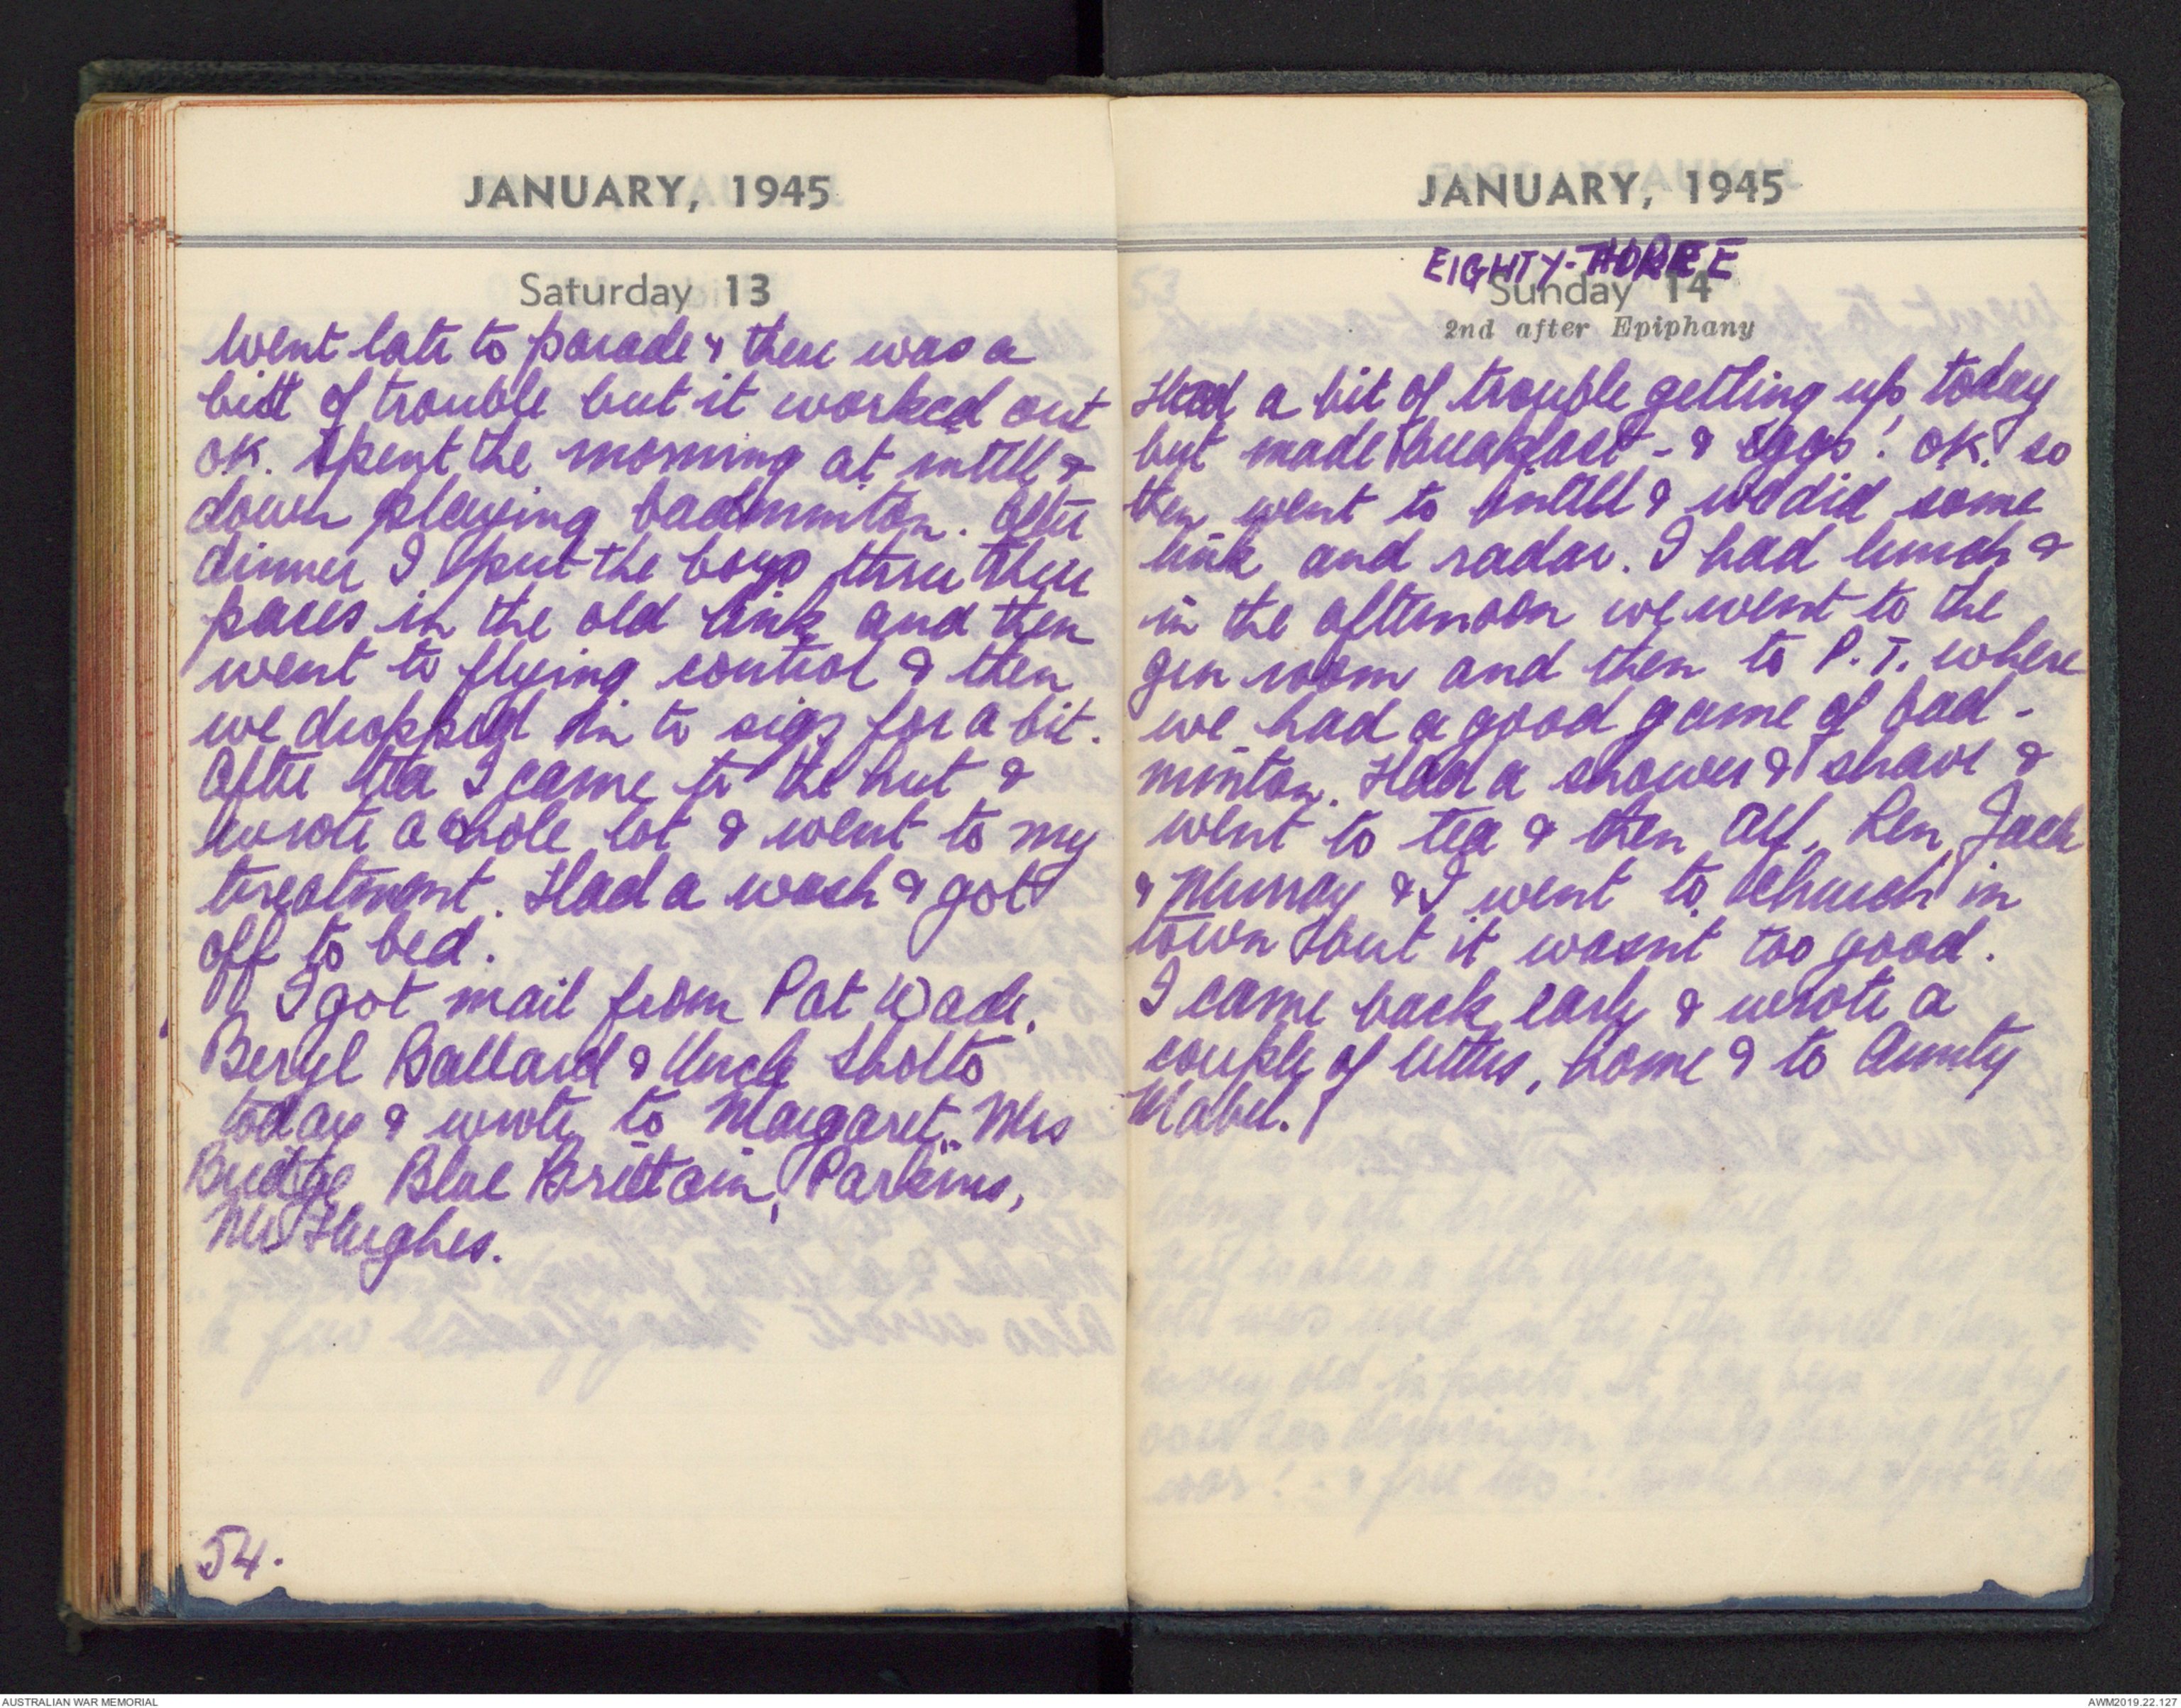 JANUARY, 1945
Saturday 13
Went late to parade & there was a
bit of trouble but it worked out
OK. Spent the morning at intell &
down playing badminton. After
dinner I put the boys thru there
paces in the old link and then
went to flying control & then
we dropped in to sigs for a bit.
After tea I came to the hut &
wrote a whole lot & went to my
treatment. Had a wash & got
off to bed.
I got mail from Pat Wade,
Beryl Ballard & Uncle Sholto
today & wrote to Margaret, Mrs
Budge, Blue Brittain, Parkins,
Mrs Hughes.
54.
JANUARY, 1945
EIGHTY-THREE
Sunday 14
2nd after Epiphany
Had a bit of trouble getting up today
but made breakfast - & eggs! OK. so
then went to intell & we did some
link and radar. I had lunch &
in the afternoon we went to the
gen room and then to P.T. where
we had a good game of bad-
minton. Had a shower & shave &
went to tea & then Alf, Len, Jack
& Murray & I went to church in
town but it wasnt too good.
I came back early & wrote a
couple of letters, home & to Aunty
Mabel.
AUSTRALIAN WAR MEMORIAL
AWM2019.22.127